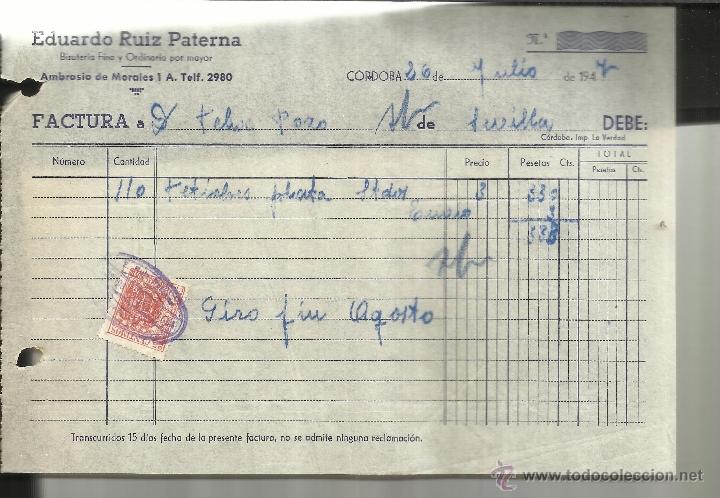 Eduardo Ruiz Paterna
Bisutería Fina y Ordinaria por mayor
Ambrosio de Morales 1 A. Telf. 2980
N.º
CÓRDOBA 26 de Julio de 194
FACTURA a D Pozo de Sevilla DEBE:
Córdoba. Imp. La Verdad
Número Cantidad Precio Pesetas Cts. TOTAL
Pesetas Cts.
110 plata 3 330
Envio
Giro fin Agosto
Transcurridos 15 días fecha de la presente factura, no se admite ninguna reclamación.
www.todocoleccion.net
todocoleccion